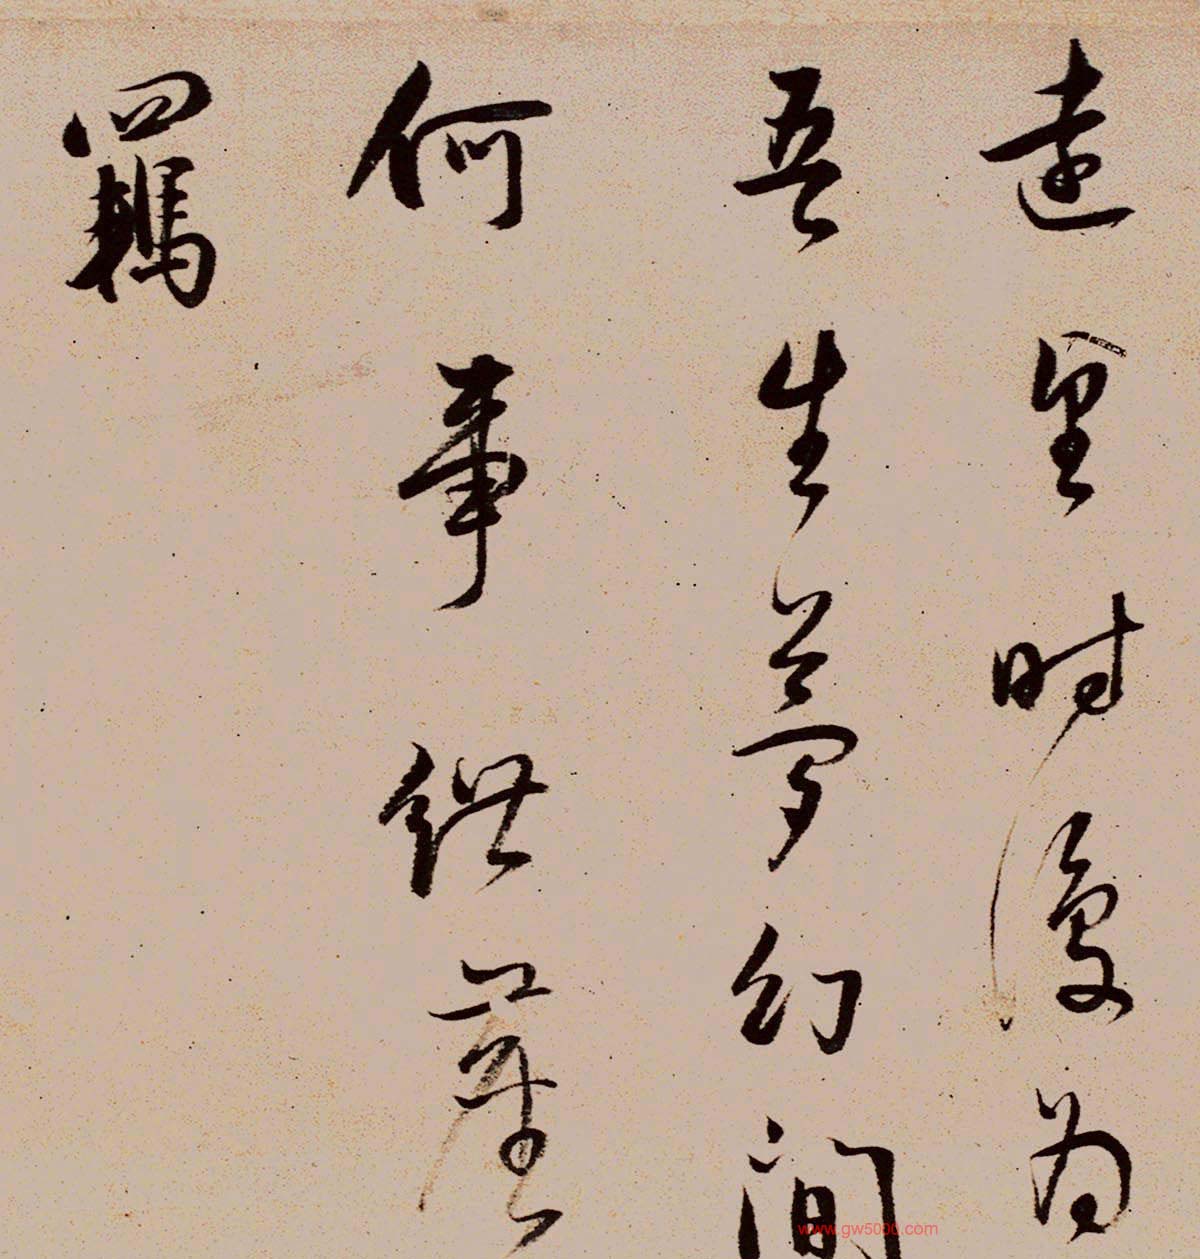 遠望時復為
吾生夢幻間
何事紲塵
羈
www.gw5000.com